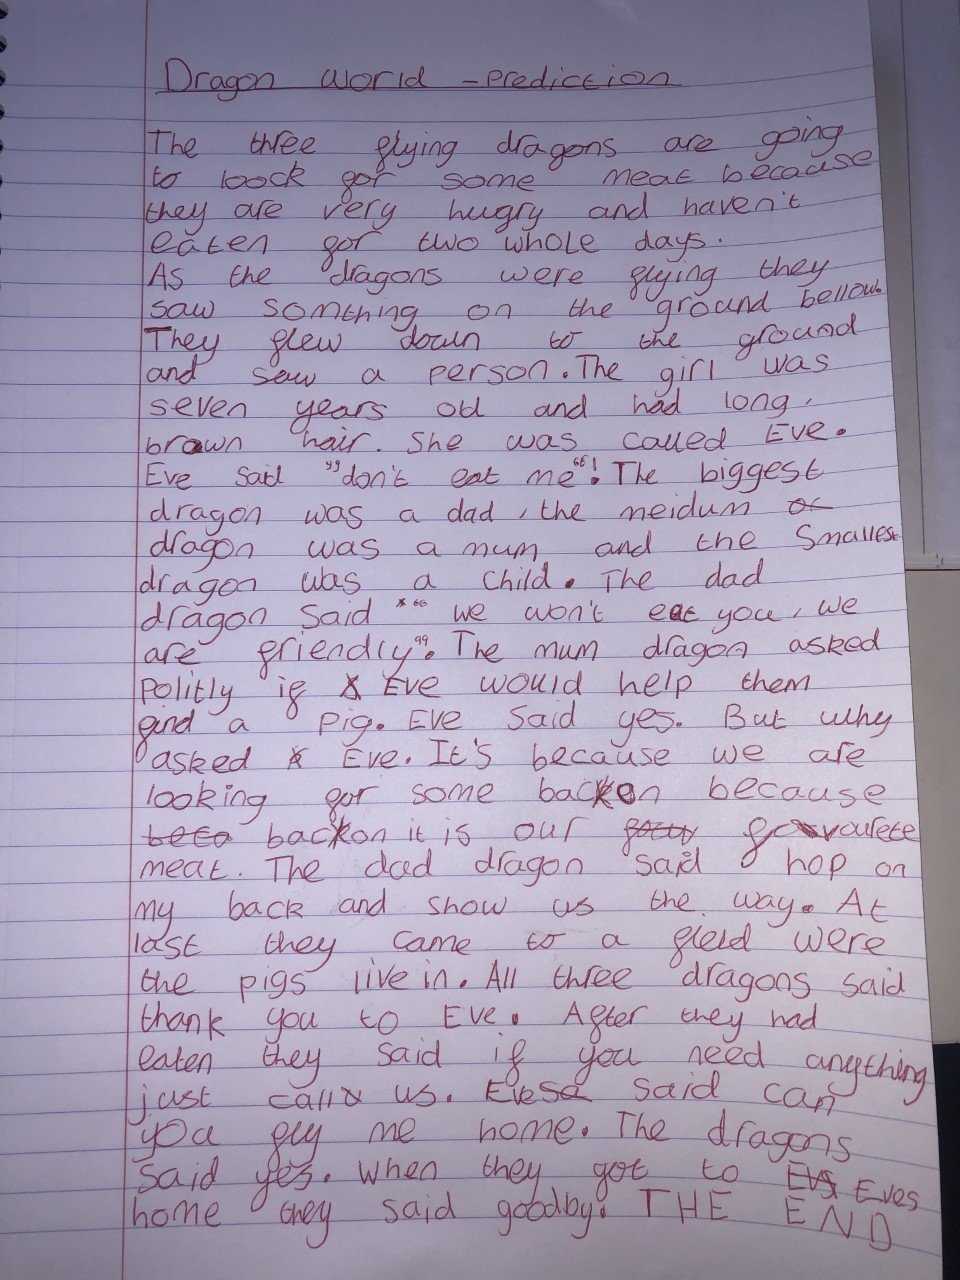 Dragon world - prediction
The three flying dragons are going
to look for some meat because
they are very hugry and haven't
eaten for two whole days.
As the dragons were flying they
saw somthing on the ground bellow.
They flew down to the ground
and saw a person. The girl was
seven years old and had long,
brown hair. She was called Eve.
Eve said "don't eat me"! The biggest
dragon was a dad, the meidum
dragon was a mum and the smallest
dragon was a child. The dad
dragon said "we won't eat you, we
are friendly". The mum dragon asked
politly if Eve would help them
find a pig. Eve said yes. But why
asked Eve. It's because we are
looking for some backon because
backon it is our favourete
meat. The dad dragon said hop on
my back and show us the way. At
last they came to a field were
the pigs live in. All three dragons said
thank you to Eve. After they had
eaten they said if you need anything
just call us. Eve said can
you fly me home. The dragons
said yes. When they got to Eves
home they said goodby. THE END